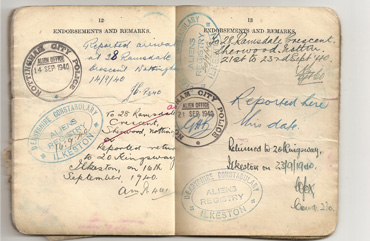 12
ENDORSEMENTS AND REMARKS.
Reported arrival
at 28 Ramsdale
Crescent Nottingham
14/9/40
NOTTINGHAM CITY POLICE
ALIEN OFFICE
14 SEP 1940
DERBYSHIRE CONSTABULARY
ALIENS
REGISTRY
ILKESTON
To 28 Ramsdale
Crescent,
Sherwood, Nottm
Reported return
to 20 Kingsway,
Ilkeston, on 16th
September 1940.
12
ENDORSEMENTS AND REMARKS.
To 28 Ramsdale Crescent,
Sherwood, Nottm.
21st to 23rd Sept 40.
ALIENS
REGISTRY
ALIEN OFFICE
21 SEP 1940
CITY POLICE
Reported here
this date.
Returned to 20 Kingsway,
Ilkeston on 23/9/1940.
DERBYSHIRE CONSTABULARY
ALIENS
REGISTRY
ILKESTON